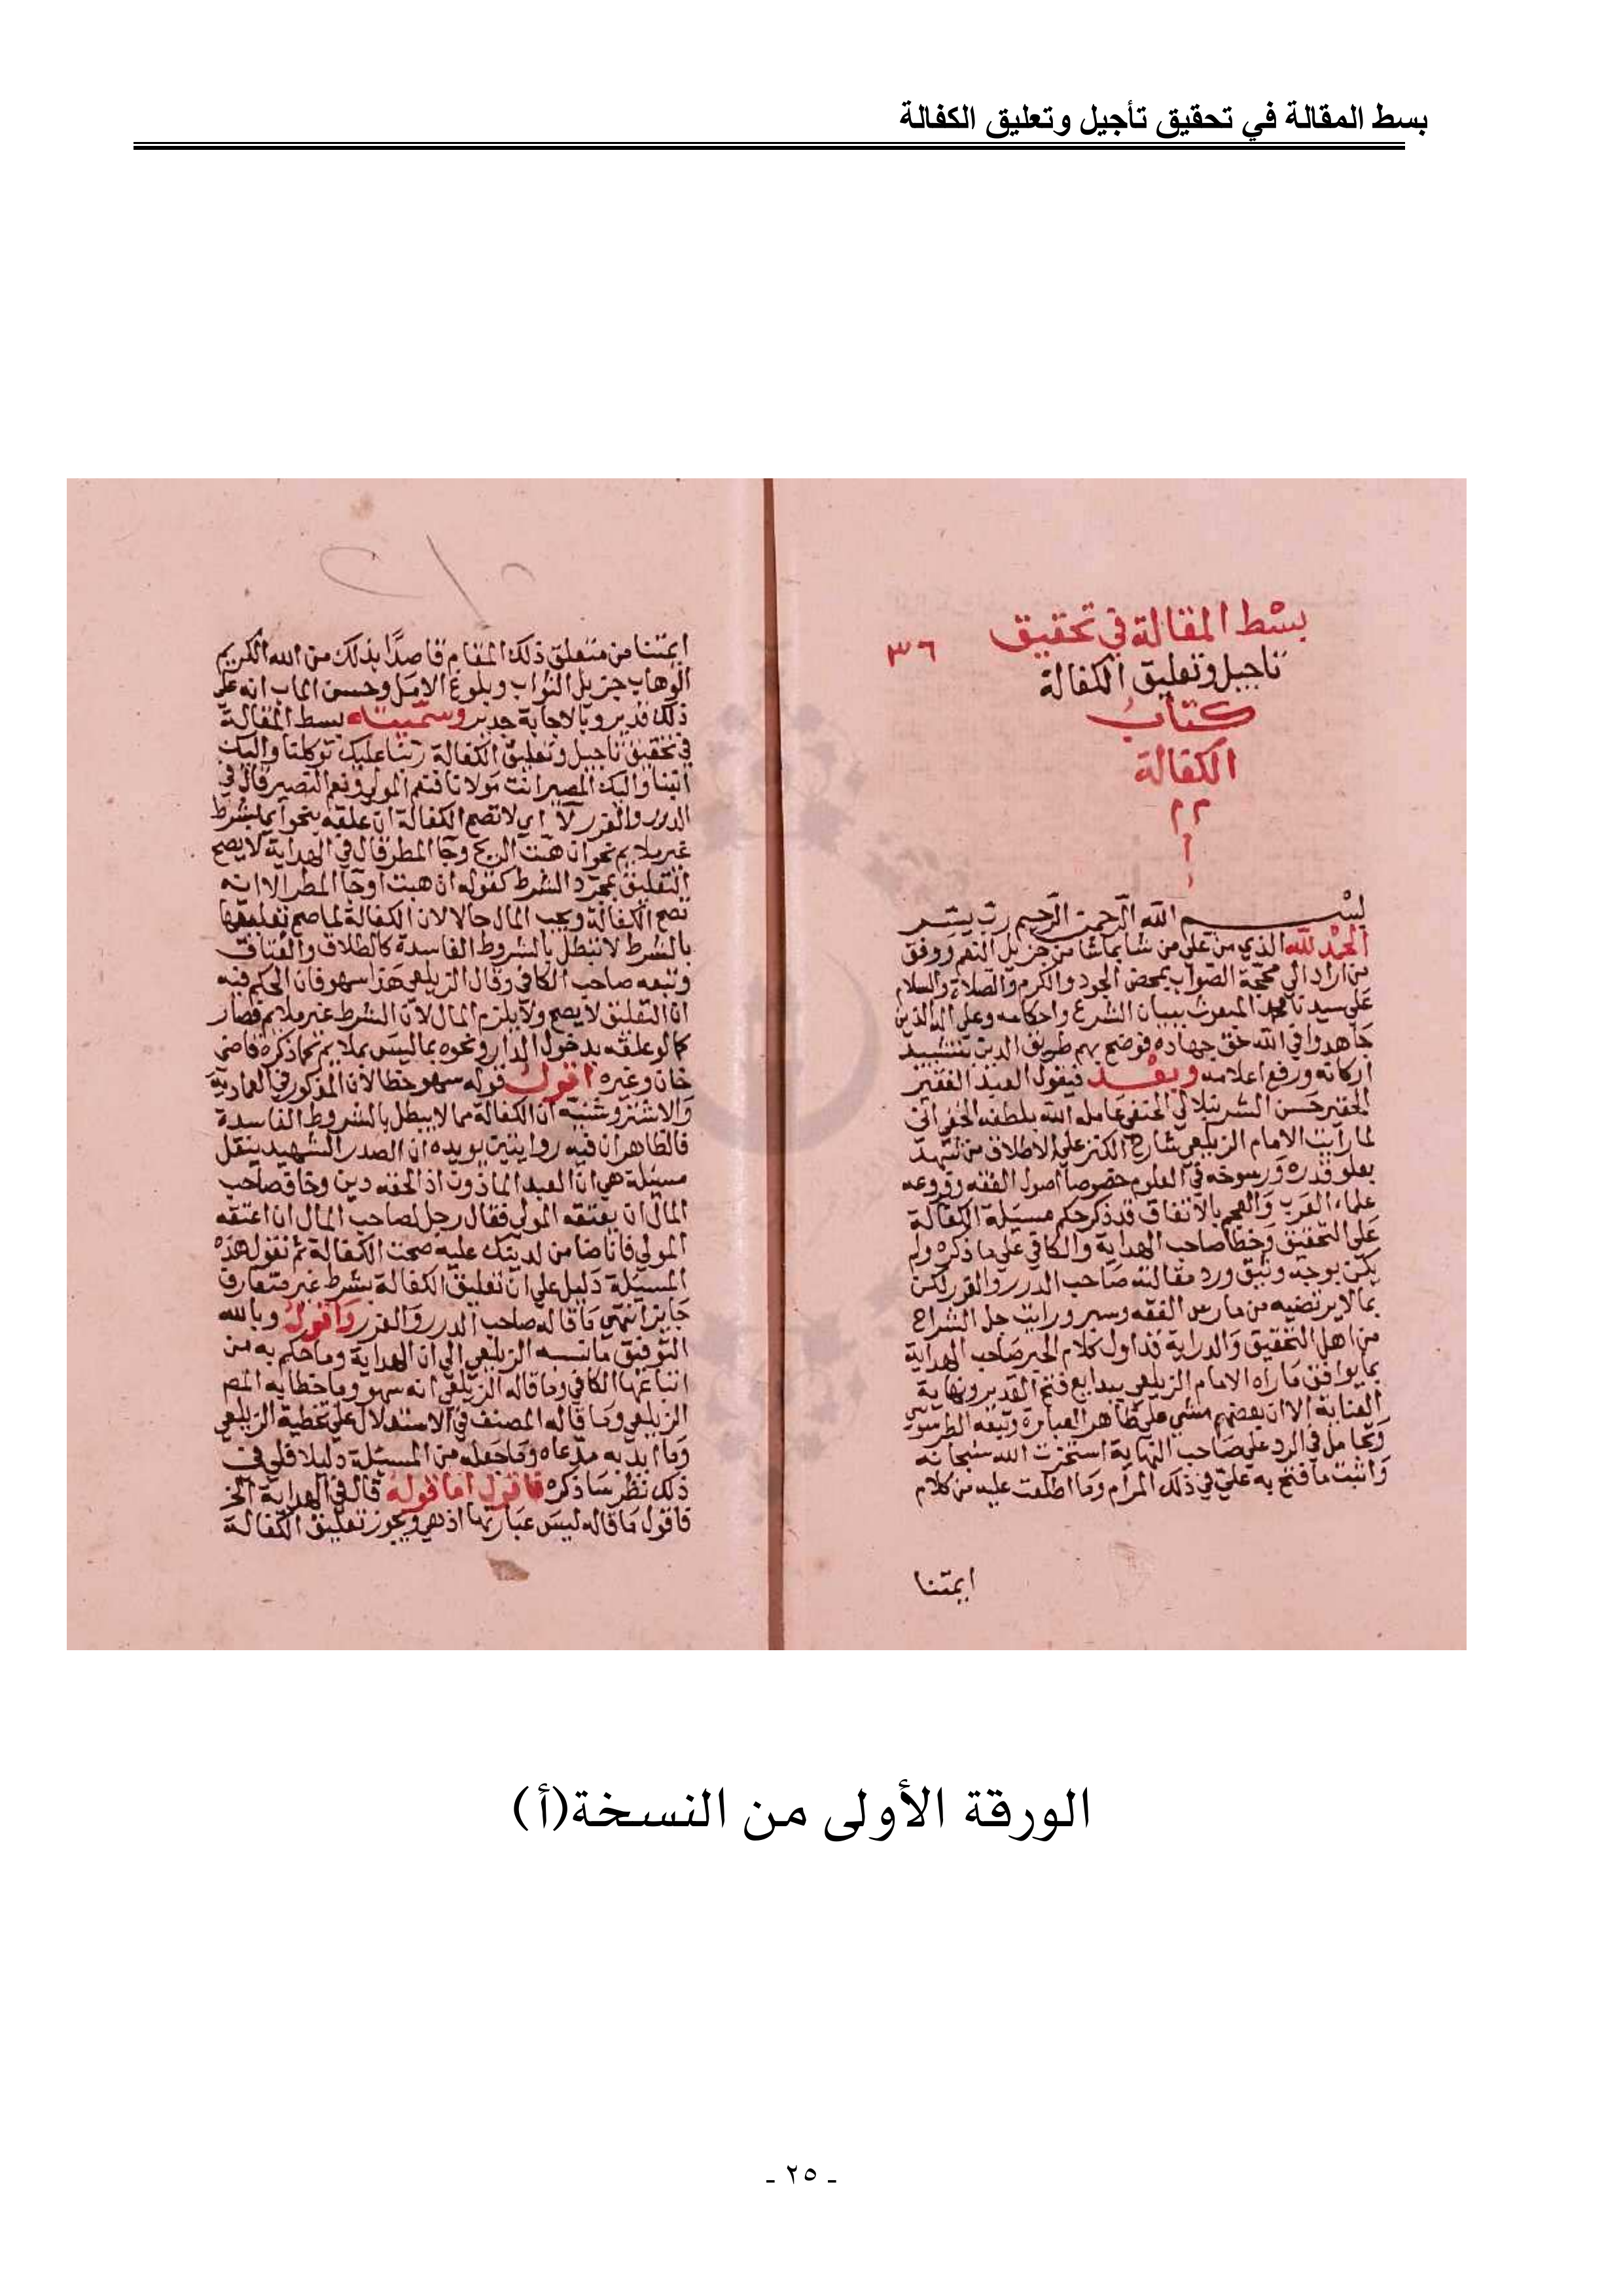 بسط المقالة في تحقيق تأجيل وتعليق الكفالة
بسط المقالة في تحقيق
٣٦
تاجيل وتعليق الكفالة
كتاب
الكفالة
بسم الله الرحمن الرحيم رب يسر
الحمد لله الذي من على من شا بماشا من جزيل النعم ووفق
من اراد الى محجة الصواب بمحض الجود والكرم والصلاة والسلام
على سيدنا محمد المبعوث ببيان الشرع واحكامه وعلى اله الذين
جاهدوا في الله حق جهاده فوضح بهم طريق الدين بتشييد
اركانه ورفع اعلامه وبعد فيقول العبد الفقير
الحقير حسن الشرنبلالي الحنفي عامله الله بلطفه الخفي اني
لما رايت الامام الزيلعي شارح الكنز على الاطلاق من شهد
بعلو قدره ورسوخه في العلوم خصوصا اصول الفقه وفروعه
علماء العرب والعجم بالاتفاق قد ذكر حكم مسيلة الكفالة
على التحقيق وخطا صاحب الهداية والكافي على ما ذكره ولم
يكن بوجه وثيق ورد مقالته صاحب الدرر والغرر لكن
بما لا يرتضيه من مارس الفقه وسبر ورايت جل الشراح
من اهل التحقيق والدراية تداول كلام الحبر صاحب الهداية
بما يوافق ما راه الامام الزيلعي ببدايع فتح القدير ونهاية
العناية الا ان بعضهم مشى على ظاهر العبارة وتبعه الطرسوسي
وتحامل في الرد على صاحب النهاية استخرت الله سبحانه
واثبت ما فتح به علي في ذلك المرام وما اطلعت عليه من كلام
ايمتنا
ايمتنا من متعلق ذلك المقام قاصدا بذلك من الله الكريم
الوهاب جزيل الثواب وبلوغ الامل وحسن الماب انه على
ذلك قدير وبالاجابة جدير وسميته بسط المقالة
في تحقيق تاجيل وتعليق الكفالة ربنا عليك توكلنا واليك
انبنا واليك المصير انت مولانا فنعم المولى ونعم النصير قال في
الدرر والغرر لا اي لا تصح الكفالة ان علقه بنحو اي بشرط
غير ملايم نحو ان هبت الريح وجا المطر قال في الهداية لا يصح
التعليق بمجرد الشرط كقوله ان هبت اوجا المطر الا انه
تصح الكفالة ويجب المال حالا لان الكفالة لما صح تعليقها
بالشرط لا تبطل بالشروط الفاسدة كالطلاق والعتاق
وتبعه صاحب الكافي وقال الزيلعي هذا سهو فان الحكم فيه
ان التعليق لا يصح ولا يلزم المال لان الشرط غير ملايم فصار
كما لو علقه بدخول الدار ونحوه بما ليس بملايم كما ذكره قاضي
خان وغيره اقول قوله سهو خطا لان المذكور في العمادية
والاشتروشنية ان الكفالة مما لا يبطل بالشروط الفاسدة
فالظاهر ان فيه روايتين يويده ان الصدر الشهيد ينقل
مسئلة هي ان العبد الماذون اذا لحقه دين وخاف صاحب
المال ان يعتقه المولى فقال رجل لصاحب المال ان اعتقه
المولى فانا ضامن لدينك عليه صحت الكفالة ثم نقول هذه
المسئلة دليل على ان تعليق الكفالة بشرط غير متعارف
جايز انتهى ما قاله صاحب الدرر والغرر واقول وبالله
التوفيق ما نسبه الزيلعي الى ان الهداية وما حكم به من
اتباعها الكافي وما قاله الزيلعي انه سهو وما خطا به المص
الزيلعي وما قاله المصنف في الاستقلال على تخطية الزيلعي
وما ايد به مدعاه وما جعله من المسئلة دليلا فلي في
ذلك نظر ساذكره فاقول اما قوله قال في الهداية الخ
فاقول ما قاله ليس عبارتها اذ هي ويجوز تعليق الكفالة
الورقة الأولى من النسخة(أ)
- ٢٥ -